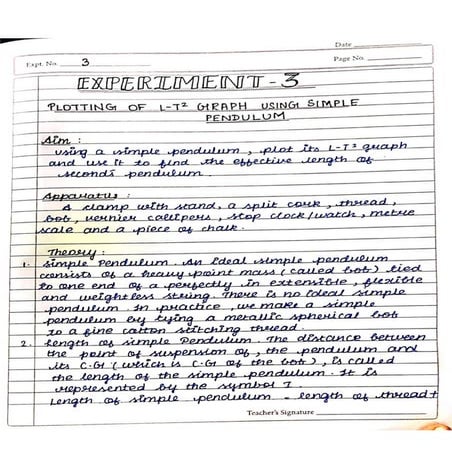 Date
Expt. No. 3
Page No.
EXPERIMENT - 3
PLOTTING OF L-T² GRAPH USING SIMPLE
PENDULUM
Aim :
Using a simple pendulum, plot its L-T² graph
and use it to find the effective length of
second's pendulum.
Apparatus :
A clamp with stand, a split cork, thread,
bob, vernier callipers, stop clock/watch, metre
scale and a piece of chalk.
Theory :
1. Simple Pendulum. An Ideal simple pendulum
consists of a heavy point mass (called bob) tied
to one end of a perfectly in extensible, flexible
and weightless string. There is no ideal simple
pendulum. In practice, we make a simple
pendulum by tying a metallic spherical bob
to a fine cotton stitching thread.
2. Length of simple Pendulum. The distance between
the point of suspension of, the pendulum and
its C.G (which is C.G of the bob), is called
the length of the simple pendulum. It is
represented by the symbol l.
Length of simple pendulum = length of thread +
Teacher's Signature